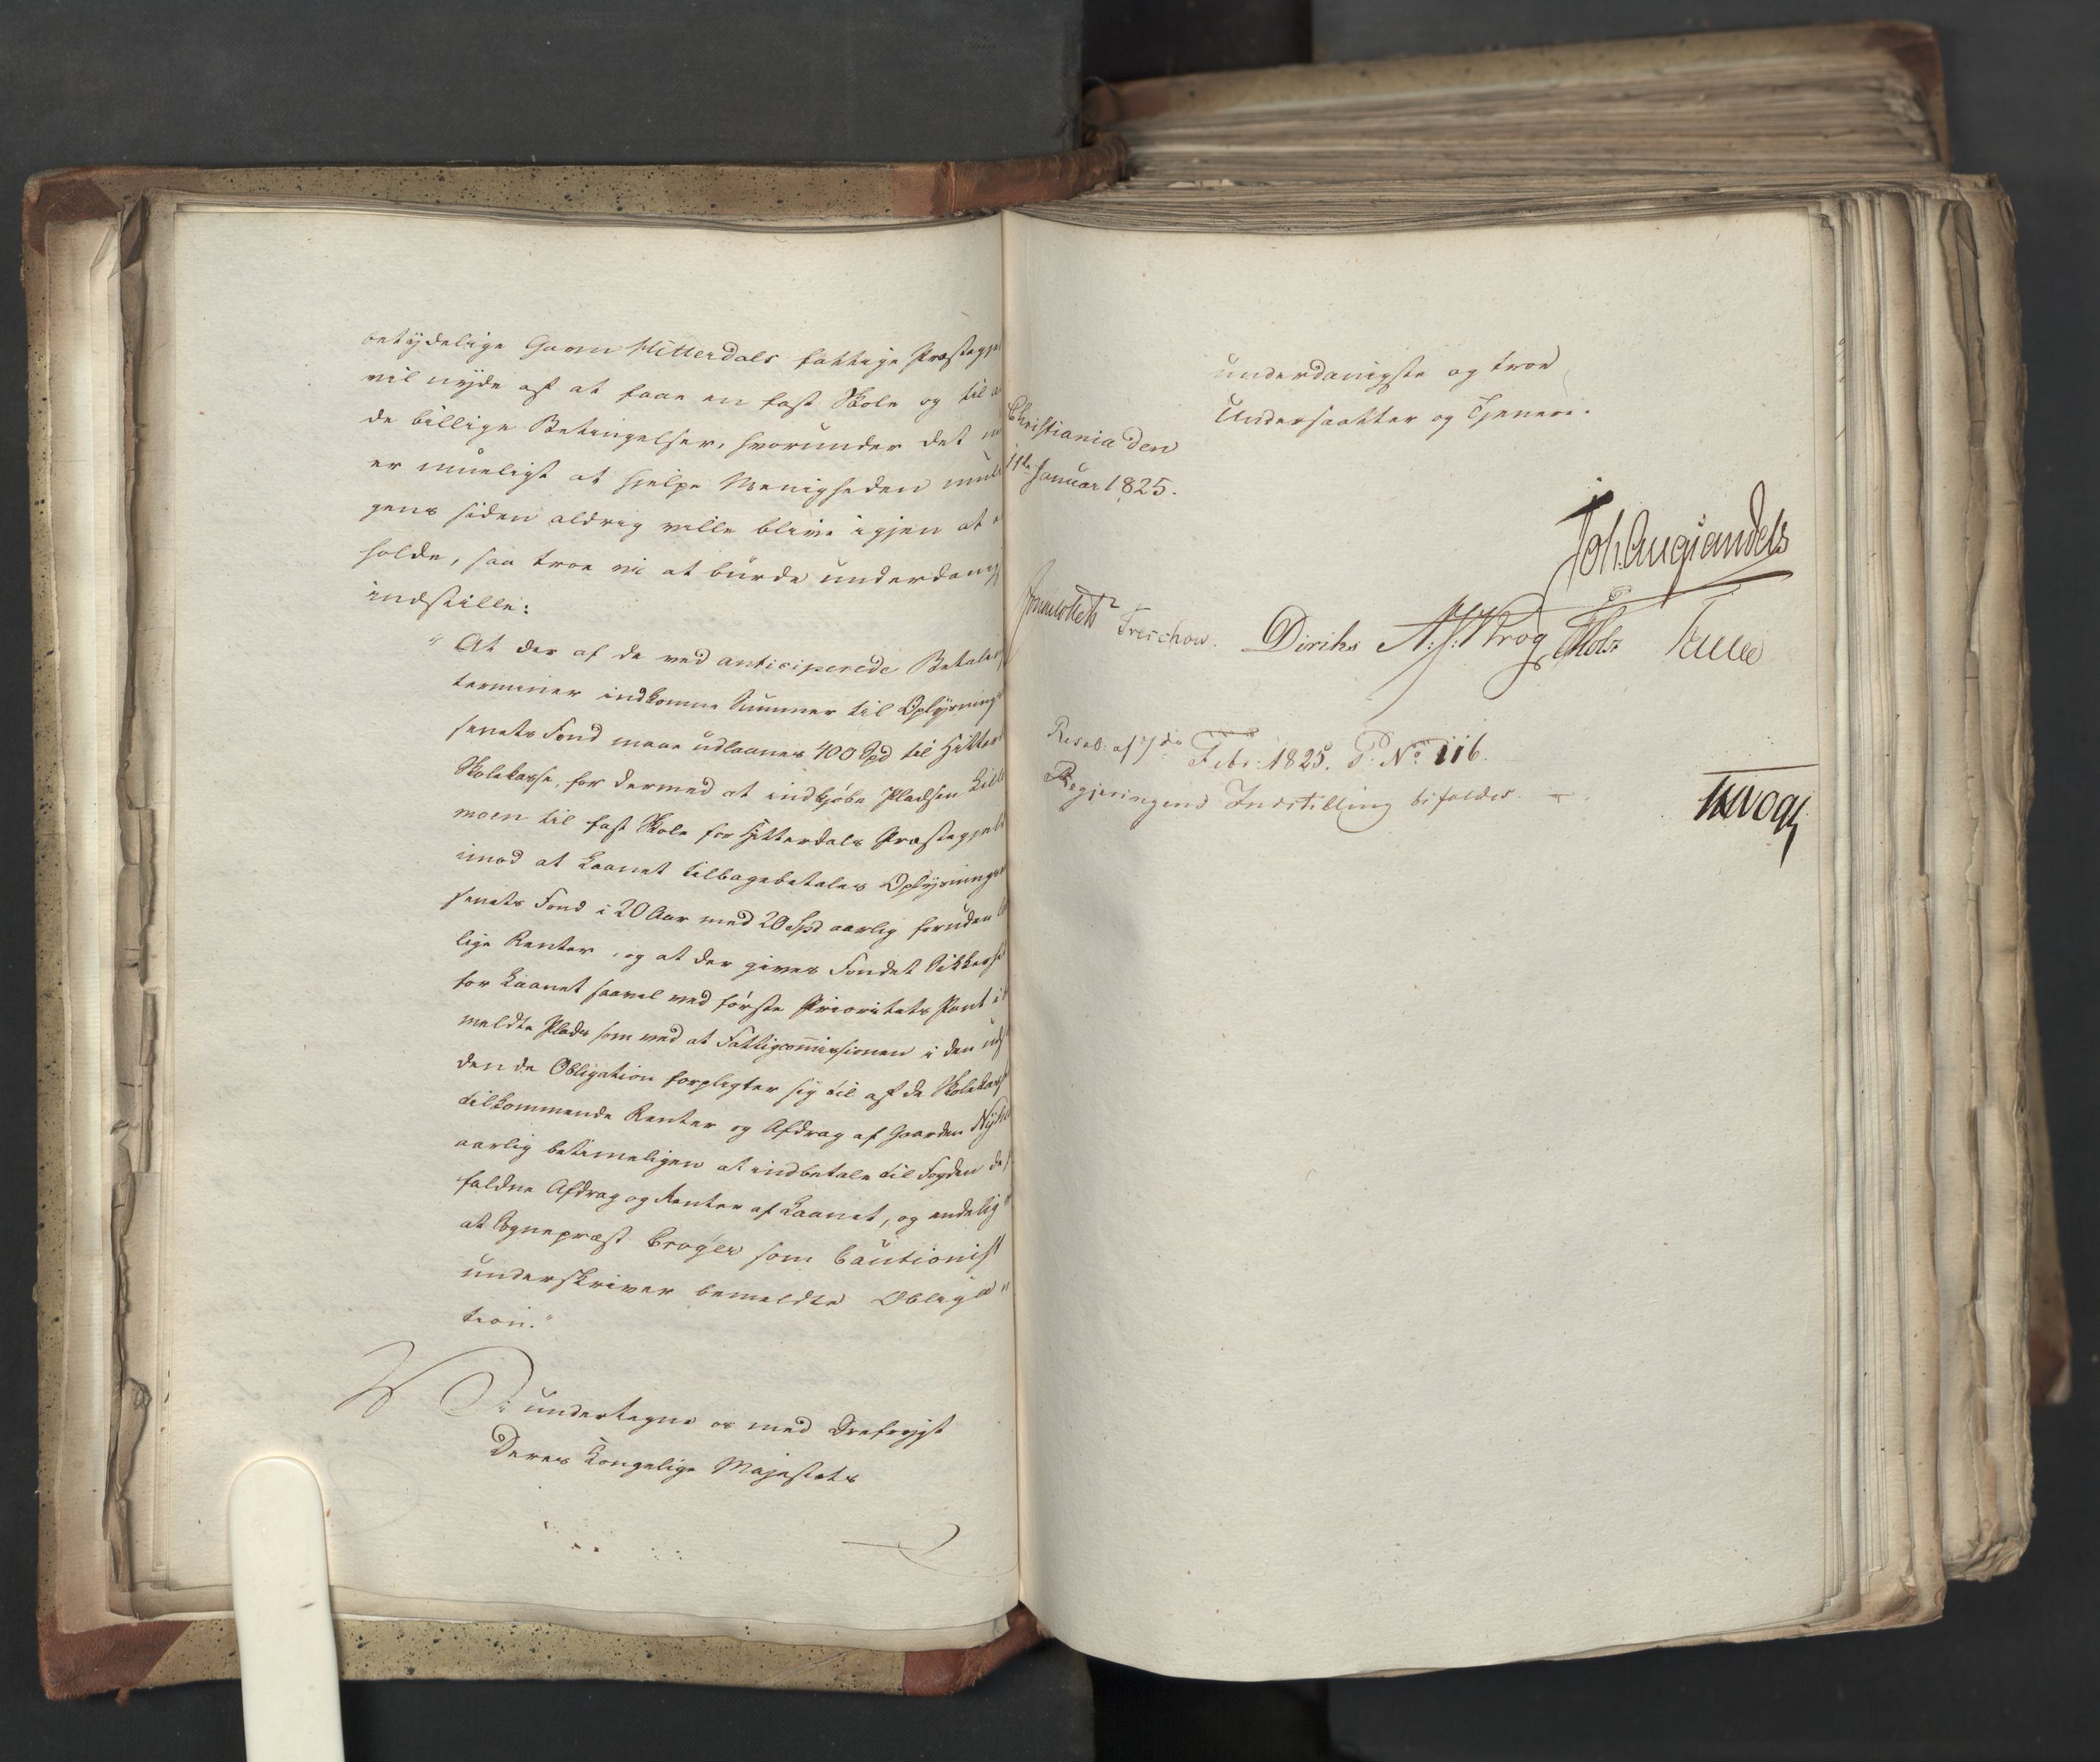 betydelige Gavn Hitterdals fattige Præstegje
vil nyde af at faae en fast Skole og til
de billige Betingelser, hvorunder det
er mueligt at hjelpe Menigheden
gens siden aldrig ville blive igjen at
holde, saa troe vi at burde underdanig
indstille:
" At der af de ved anticiperede Betalings
terminer indkomne Summer til Oplysning
senets Fond maae udlaanes 400 Spd til Hitter
Skolekasse, for dermed at indkjøbe Pladsen
moen til fast Skole for Hitterdals Præstegjeld
imod at Laanet tilbagebetales Oplysningsvæ
senets Fond i 20 Aar med 20 Spd aarlig foruden
lige Renter, og at der gives Fondet Sikkerhed
for Laanet saavel ved første Prioritets Pant i
meldte Plads som ved at Fattigcommissionen i den
dende Obligation forpligter sig til af de Skolekassen
tilkommende Renter og Afdrag af Gaarden
aarlig betimeligen at indbetale til Fogden de
faldne Afdrag og Renter af Laanet, og endelig
at Sognepræst Crøger som Cautionist
underskriver bemeldte Obliga
tion."
Vi undertegne os med Ærefrygt
Deres Kongelige Majestets
underdanigste og troe
Undersaatter og Tjenere.
Christiania den
11te Januar 1825.
Joh. Aug. Sandels
Sommerfeldt Treschow. Diriks A. J. Krog Holst
Resol: af 7de Febr: 1825. P: No 116.
Regjeringens Indstilling bifaldes.